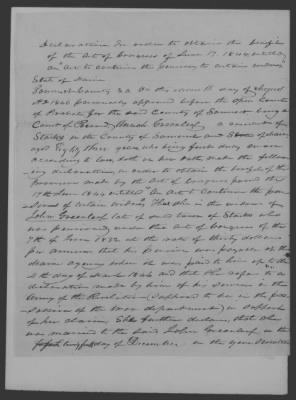 Declaration in order to obtain the benefit
of the Act of Congress of June 17. 1844, entitled
"An Act to continue the pensions to certain widows"
State of Maine
Somerset County ss On this seventh day of August
AD 1846 personally appeared before the Open Court
of Probate for the said County of Somerset being a
Court of Record, Greenleaf, a resident of
Starks in the County of Somerset and State of Maine
aged Eighty three years who being first duly sworn
according to law, doth on her oath, make the follow-
ing declaration, in order to obtain the benefit of the
provision made by the Act of Congress passed the
17th June 1844 entitled "An Act to Continue the pen-
sions of certain widows, That she is the widow of
John Greenleaf late of said town of Starks who
was pensioned under the Act of Congress of the
7th of June 1832 at the rate of thirty dollars
per annum that his pension was payable at the
agency where he was paid to him up to the
4th day of March 1846 and that she refers to a
declaration made by him of his services in the
Army of the Revolution (supposed to be in the pos-
session of the War department) in support
of her claim. She further declares, that she
was married to the said John Greenleaf on the
day of December, in the year